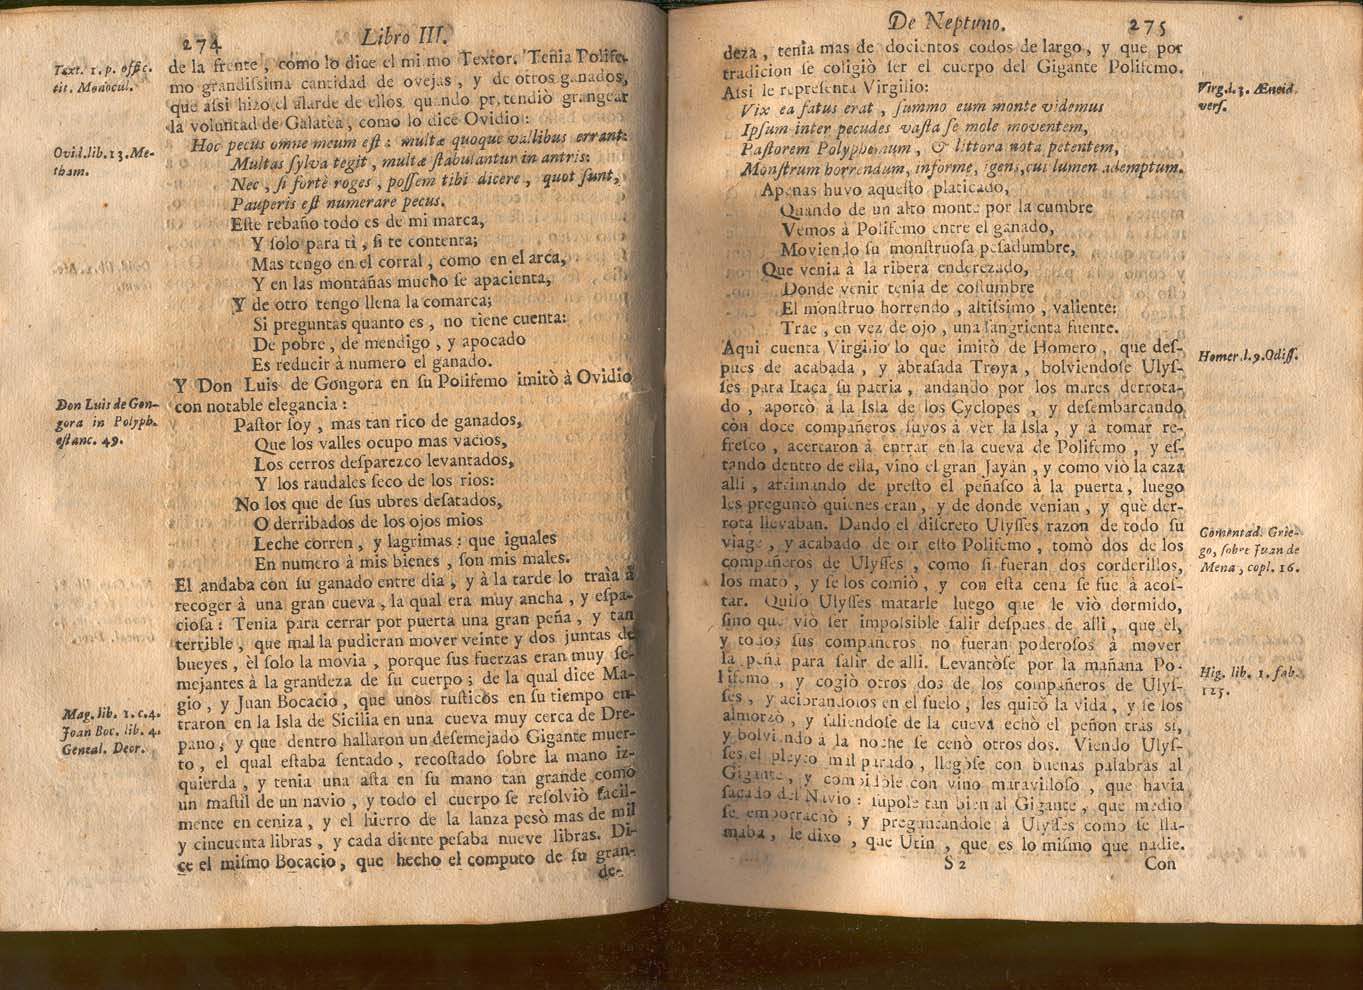 274 Libro III.
Text. 1. p. offic.
tit. Monocul.
de la frente, como lo dice el mismo Textor. Tenia Polife-
mo grandiſsima cantidad de ovejas, y de otros ganados,
que aſsi hizo el alarde de ellos quando pretendiò grangear
la voluntad de Galatea, como lo dice Ovidio:
Ovid. lib. 13. Me-
tham.
Hoc pecus omne meum eſt: multæ quoque vallibus errant:
Multas ſylva tegit, multæ ſtabulantur in antris:
Nec, ſi fortè roges, poſſem tibi dicere, quot ſunt,
Pauperis eſt numerare pecus.
Eſte rebaño todo es de mi marca,
Y ſolo para tì, ſi te contenta;
Mas tengo en el corral, como en el arca,
Y en las montañas mucho ſe apacienta,
Y de otro tengo llena la comarca;
Si preguntas quanto es, no tiene cuenta:
De pobre, de mendigo, y apocado
Es reducir à numero el ganado.
Y Don Luis de Gongora en ſu Polifemo imitò à Ovidio
con notable elegancia:
Don Luis de Gon-
gora in Polyph.
eſtanc. 49.
Paſtor ſoy, mas tan rico de ganados,
Que los valles ocupo mas vacios,
Los cerros deſparezco levantados,
Y los raudales ſeco de los rios:
No los que de ſus ubres deſatados,
O derribados de los ojos mios
Leche corren, y lagrimas: que iguales
En numero à mis bienes, ſon mis males.
El andaba con ſu ganado entre dia, y à la tarde lo traìa à
recoger à una gran cueva, la qual era muy ancha, y eſpa-
cioſa: Tenia para cerrar por puerta una gran peña, y tan
terrible, que mal la pudieran mover veinte y dos juntas de
bueyes, èl ſolo la movia, porque ſus fuerzas eran muy ſe-
mejantes à la grandeza de ſu cuerpo; de la qual dice Ma-
gio, y Juan Bocacio, que unos ruſticos en ſu tiempo en-
Mag. lib. 1. c. 4.
Joan Boc. lib. 4.
Geneal. Deor.
traron en la Isla de Sicilia en una cueva muy cerca de Dre-
pano, y que dentro hallaron un deſemejado Gigante muer-
to, el qual eſtaba ſentado, recoſtado ſobre la mano iz-
quierda, y tenia una aſta en ſu mano tan grande como
un maſtil de un navio, y todo el cuerpo ſe reſolviò facil-
mente en ceniza, y el hierro de la lanza pesò mas de mil
y cincuenta libras, y cada diente peſaba nueve libras. Di-
ce el miſmo Bocacio, que hecho el computo de ſu gran-
de-
De Neptuno. 275
deza, tenia mas de docientos codos de largo, y que por
tradicion ſe coligiò ſer el cuerpo del Gigante Polifemo.
Aſsi le repreſenta Virgilio:
Virg. l. 3. Æneid.
verſ.
Vix ea fatus erat, ſummo eum monte videmus
Ipſum inter pecudes vaſta ſe mole moventem,
Paſtorem Polyphemum, & littora nota petentem,
Monſtrum horrendum, informe, igens, cui lumen ademptum.
Apenas huvo aqueſto platicado,
Quando de un alto monte por la cumbre
Vemos à Polifemo entre el ganado,
Moviendo ſu monſtruoſa peſadumbre,
Que venia à la ribera enderezado,
Donde venir tenia de coſtumbre
El monſtruo horrendo, altiſsimo, valiente:
Trae, en vez de ojo, una ſangrienta fuente.
Aqui cuenta Virgilio lo que imitò de Homero, que deſ-
Homer. l. 9. Odiſſ.
pues de acabada, y abraſada Troya, bolviendoſe Ulyſ-
ſes para Itaca ſu patria, andando por los mares derrota-
do, aportò à la Isla de los Cyclopes, y deſembarcando
còn doce compañeros ſuyos à vèr la Isla, y à tomar re-
freſco, acertaron à entrar en la cueva de Polifemo, y eſ-
tando dentro de ella, vino el gran Jayàn, y como viò la caza
alli, arrimando de preſto el peñaſco à la puerta, luego
les preguntò quienes eran, y de donde venian, y què der-
rota llevaban. Dando el diſcreto Ulyſſes razon de todo ſu
Comentad. Grie-
go, ſobre Juan de
Mena, copl. 16.
viage, y acabado de oir eſto Polifemo, tomò dos de los
compañeros de Ulyſſes, como ſi fueran dos corderillos,
los matò, y ſe los comiò, y con eſta cena ſe fue à acoſ-
tar. Quiſo Ulyſſes matarle luego que le viò dormido,
ſino que viò ſer impoſsible ſalir deſpues de alli, que èl,
y todos ſus compañeros no fueran poderoſos à mover
la peña para ſalir de alli. Levantòſe por la mañana Po-
Hig. lib. 1. fab.
125.
lifemo, y cogiò otros dos de los compañeros de Ulyſ-
ſes, y acibrandolos en el ſuelo, les quitò la vida, y ſe los
almorzò, y ſaliendoſe de la cueva echò el peñon tràs sì,
y bolviendo à la noche ſe cenò otros dos. Viendo Ulyſ-
ſes el pleyto mal parado, llegòſe con buenas palabras al
Gigante, y combidòle con vino maravilloſo, que havia
ſacado del Navio: ſupole tan bien al Gigante, que medio
ſe emborrachò; y preguntandole à Ulyſſes como ſe lla-
maba, le dixo, que Utin, que es lo miſmo que nadie.
S 2 Con